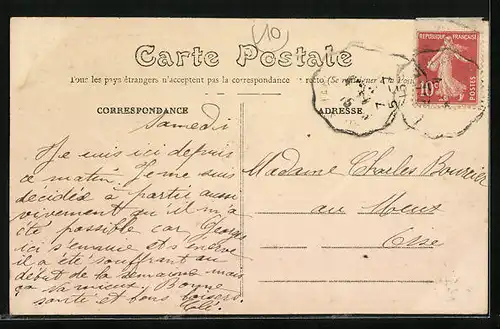 (10)
Carte Postale
Tous les pays étrangers n'acceptent pas la correspondance au recto (Se renseigner à la Poste)
CORRESPONDANCE
ADRESSE
REPUBLIQUE FRANÇAISE
10c
POSTES
Samedi
Je suis ici depuis
ce matin. Je me suis
décidée à partir aussi
vivement qu'il m'a
été possible car Georges
ici s'ennuie et s'énerve
il a été souffrant au
début de la semaine mais
ça va mieux. Bonne
santé et bons baisers
Madame Charles Bourrier
au Meux
Oise